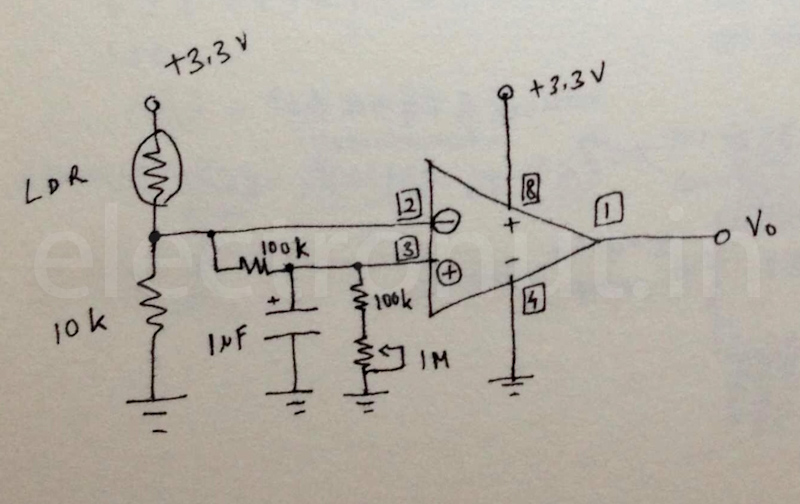 +3.3V
+3.3V
LDR
2
8
1
Vo
100k
3
+
-
100k
+
10k
1µF
1M
4
electronut.in